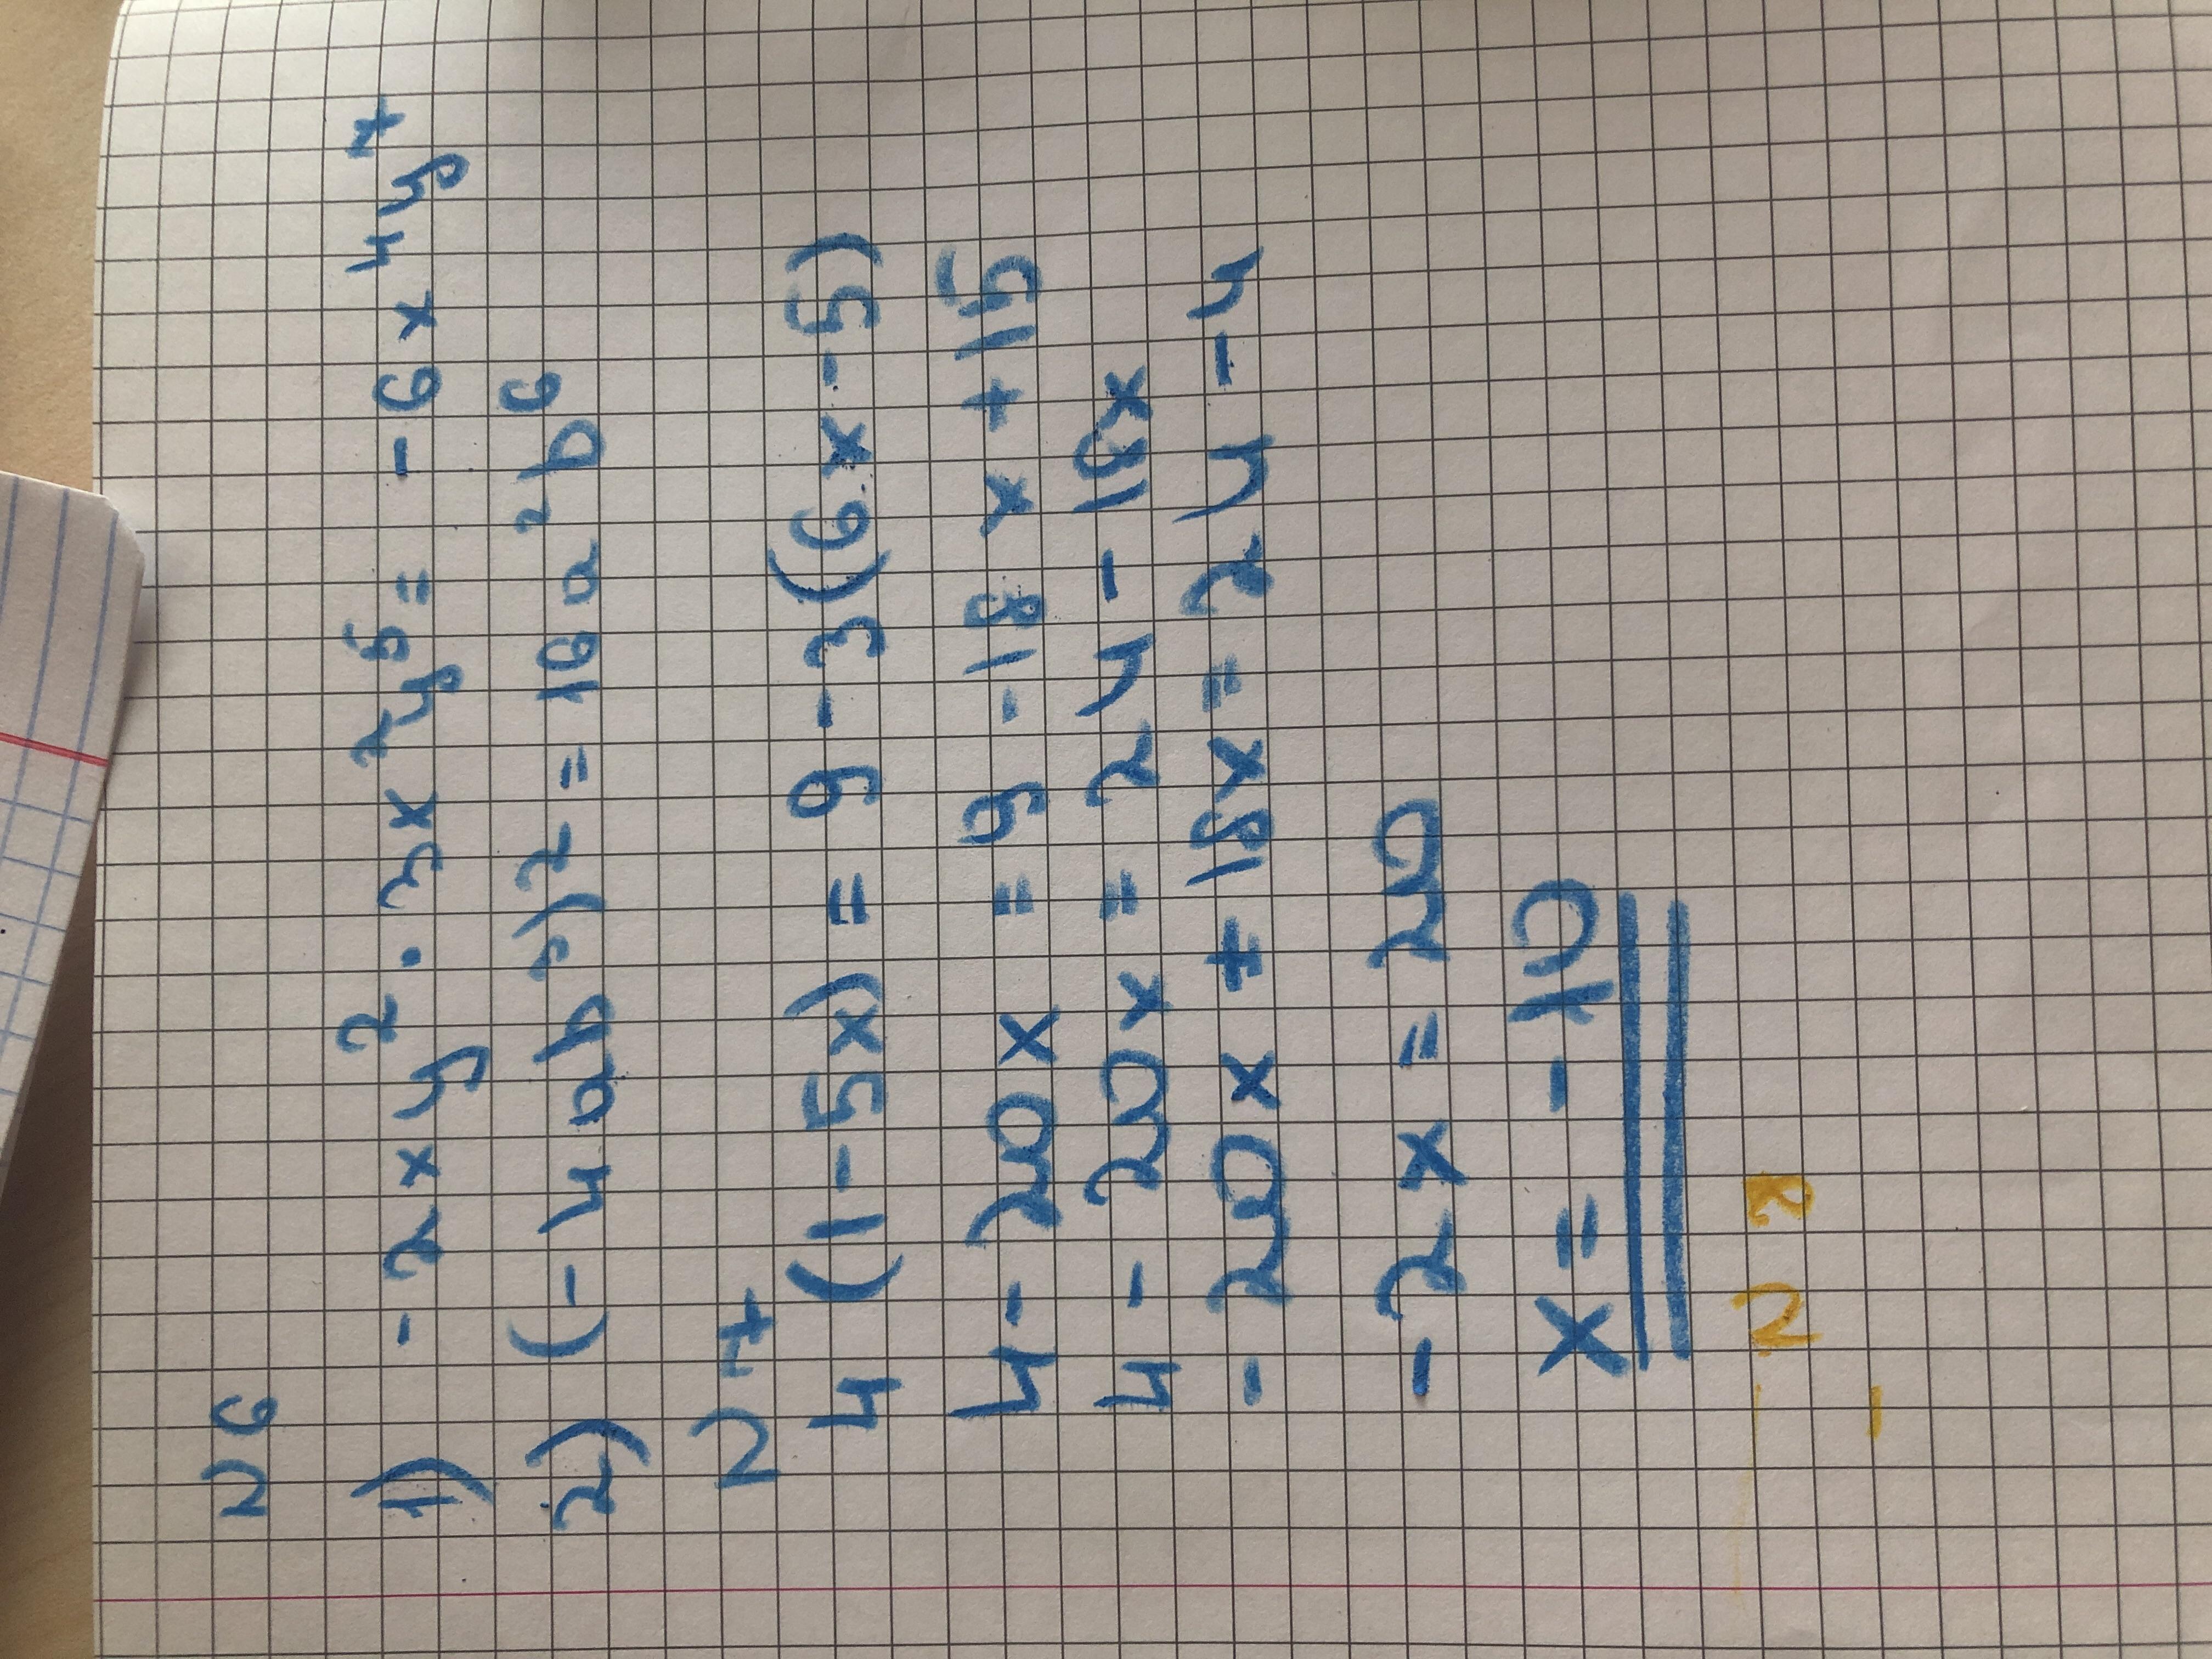 N 6
1) -2xy² · 3x²y⁵ = -6x⁴y⁷
2) (-4ab³)² = 16a²b⁶
N 7
4(1-5x) = 9-3(6x-5)
4-20x = 9-18x+15
4-20x = 24-18x
-20x+18x = 24-4
-2x = 20
x = -10
N 8